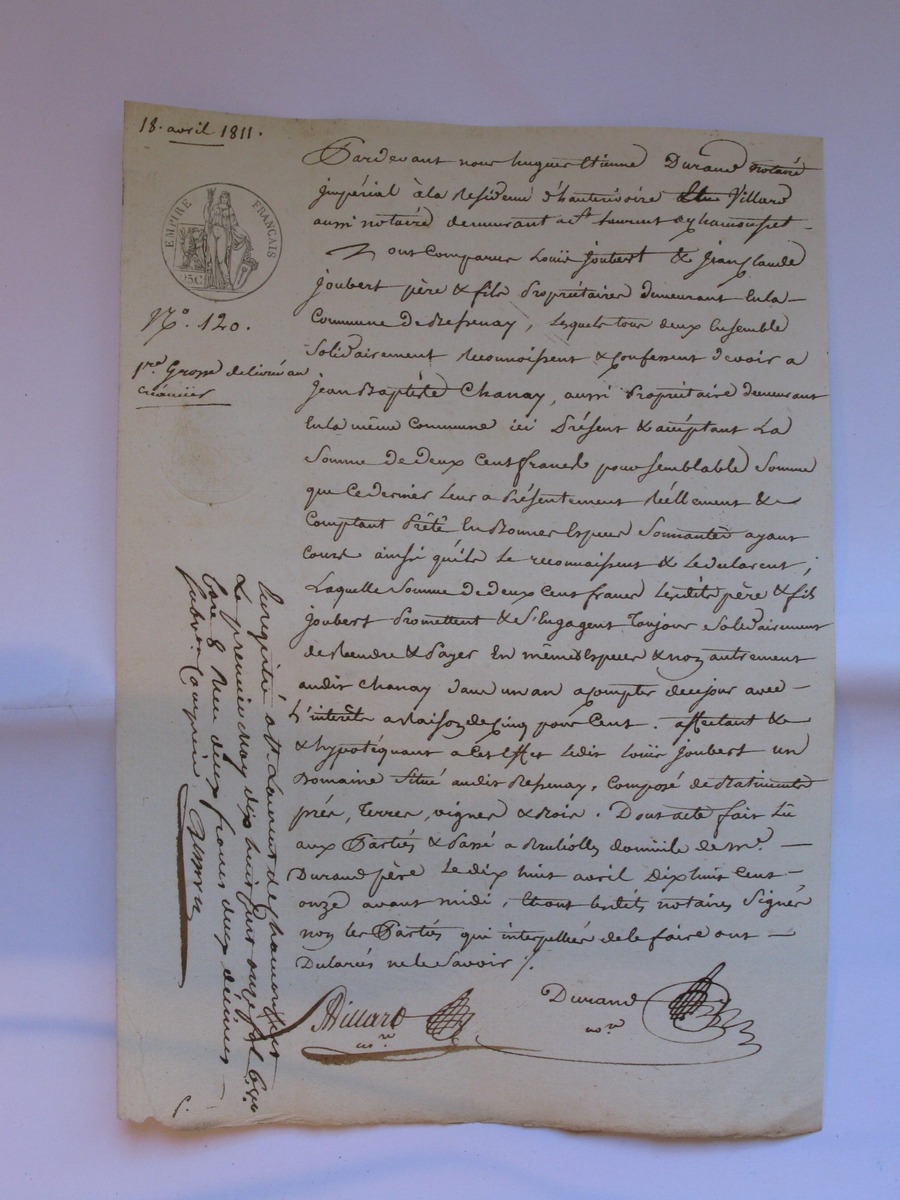 18. avril 1811.
EMPIRE FRANÇAIS
25C
N.º 120.
1re Grosse delivrée au
créancier
Pardevant nous hugues Etienne Durand notaire
impérial à la Residence d'hauterivoire Villard
aussi notaire demeurant a St. laurent dechamousset
ont Comparus Louis Joubert & Jean Claude
Joubert père & fils Propriétaires demeurant En la
Commune de Bessenay, lesquels tous deux Ensemble
Solidairement Reconnoissent & Confessent devoir a
Jean Baptiste Chanay, aussi Propriétaire demeurant
En la même Commune ici Présent & acceptant La
Somme de deux Cent francs pour semblable Somme
que Ce dernier leur a Présentement Réellement &
Comptant Prêté En Bonnes Especes Sonnantes ayant
Cours ainsi qu'ils le reconnoissent & le declarent ;
Laquelle Somme de deux Cent francs Lesdits père & fils
Joubert Promettent & S'Engagent Toujour Solidairement
de Rendre & Payer En mêmes Especes & non autrement
audit Chanay dans un an a Compter de ce jour avec
L'interêt a Raison de Cinq pour Cent. affectant &
& hypotéquant a Cet Effet Ledit Louis Joubert un
Domaine Situé audit Bessenay, Composé de Batiments
prés, Terres, vignes & Bois. Dont acte fait Lu
aux Parties & Passé a Brullioles domicile de Mr.
Durand père Le dix huit avril Dix huit Cent
onze avant midi, Et ont lesdits notaires Signés
non les Parties qui interpellées de le faire ont
Declarés ne le Savoir ./.
Villard
nore
Durand
nore
Enregistré a St. Laurent de chamousset
Le premier may dix huit cent onze fol. 69 vo
Case 8 Reçu deux francs deux decimes
Subvon Comprise